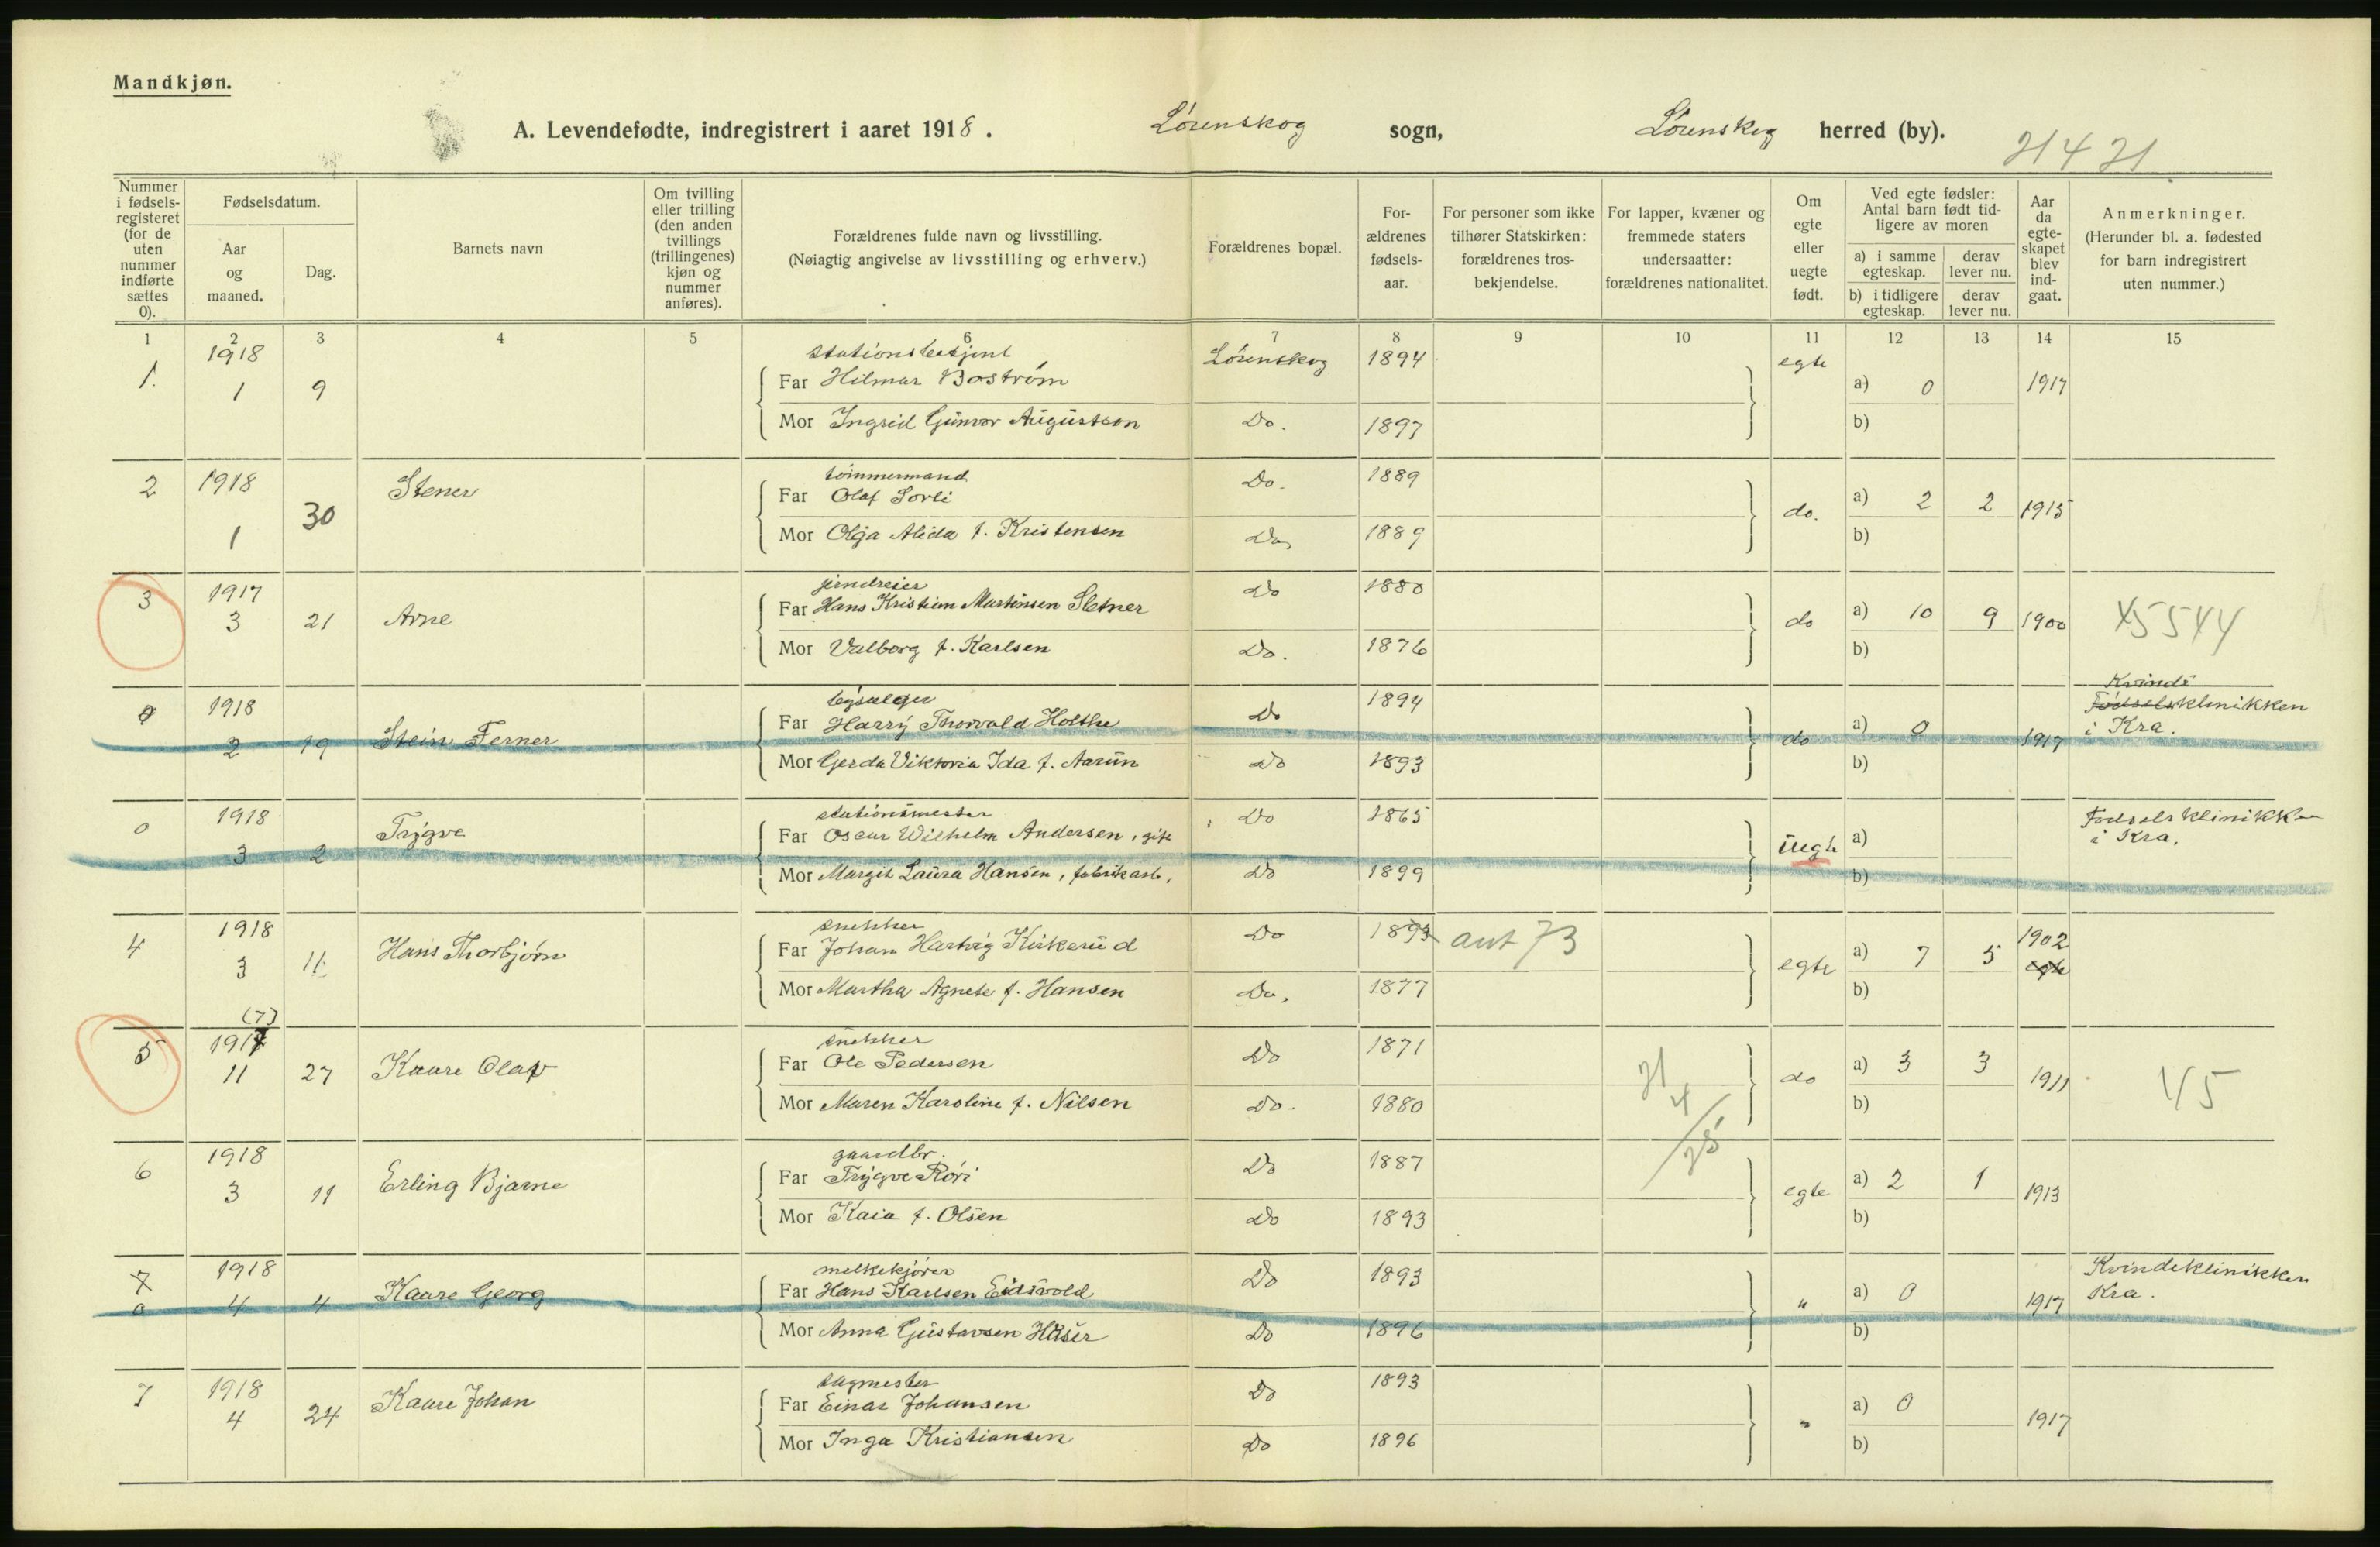 Mandkjøn.
A. Levendefødte, indregistrert i aaret 1918. Lørenskog sogn, Lørenskog herred (by).
21421
Nummer i fødselsregisteret (for de uten nummer indførte sættes 0).
Fødselsdatum.
Aar og maaned.
Dag.
Barnets navn
Om tvilling eller trilling (den anden tvillings (trillingenes) kjøn og nummer anføres).
Forældrenes fulde navn og livsstilling.
(Nøiagtig angivelse av livsstilling og erhverv.)
Forældrenes bopæl.
Forældrenes fødselsaar.
For personer som ikke tilhører Statskirken: forældrenes trosbekjendelse.
For lapper, kvæner og fremmede staters undersaatter: forældrenes nationalitet.
Om egte eller uegte født.
Ved egte fødsler: Antal barn født tidligere av moren
a) i samme egteskap. derav lever nu.
b) i tidligere egteskap. derav lever nu.
Aar da egteskapet blev indgaat.
Anmerkninger.
(Herunder bl. a. fødested for barn indregistrert uten nummer.)
1 2 3 4 5 6 7 8 9 10 11 12 13 14 15
1. 1918 1 9 stationsbetjent
Far Hilmar Boström Lørenskog 1894 egte a) 0 1917
Mor Ingrid Gunvor Augustson Do. 1897 b)
2 1918 1 30 Stener tømmermand
Far Olaf Sorli Do. 1889 do. a) 2 2 1915
Mor Olga Alida f. Kristensen Do. 1889 b)
3 1917 3 21 Arne
Far Hans Kristian Martinsen Sletner Do 1880 do a) 10 9 1900 45544
Mor Valborg f. Karlsen Do. 1876 b)
0 1918 2 19 Stein Ferner bysælger
Far Harry Thorvald Holthe Do 1894 do a) 0 1917 Kvinde Fødselsklinikken i Kra.
Mor Gerda Viktoria Ida f. Aarün Do 1893 b)
0 1918 3 2 Trygve stationsmester
Far Oscar Wilhelm Andersen, gift Do 1865 uegte a) Fødselsklinikken i Kra.
Mor Margit Laura Hansen, fabrikarb. Do 1899 b)
4 1918 3 11 Hans Thorbjørn snekker
Far Johan Hartvig Kirkerud Do 1893 ant 73 egte a) 7 5 1902 egte
Mor Martha Agnete f. Hansen Do. 1877 b)
(7)
5 1917 11 27 Kaare Olaf snekker
Far Ole Pedersen Do 1871 21 4/25 do a) 3 3 1911 45
Mor Maren Karoline f. Nilsen Do. 1880 b)
6 1918 3 11 Erling Bjarne gaardbr.
Far Trygve Röri Do 1887 egte a) 2 1 1913
Mor Kaia f. Olsen Do 1893 b)
7 0 1918 4 4 Kaare Georg melkekjører
Far Hans Karlsen Eidsvold Do 1893 " a) 0 1917 Kvindeklinikken Kra.
Mor Anna Gustavsen Huser Do 1896 b)
7 1918 4 24 Kaare Johan sagmester
Far Einar Johansen Do 1893 " a) 0 1917
Mor Inga Kristiansen Do 1896 b)